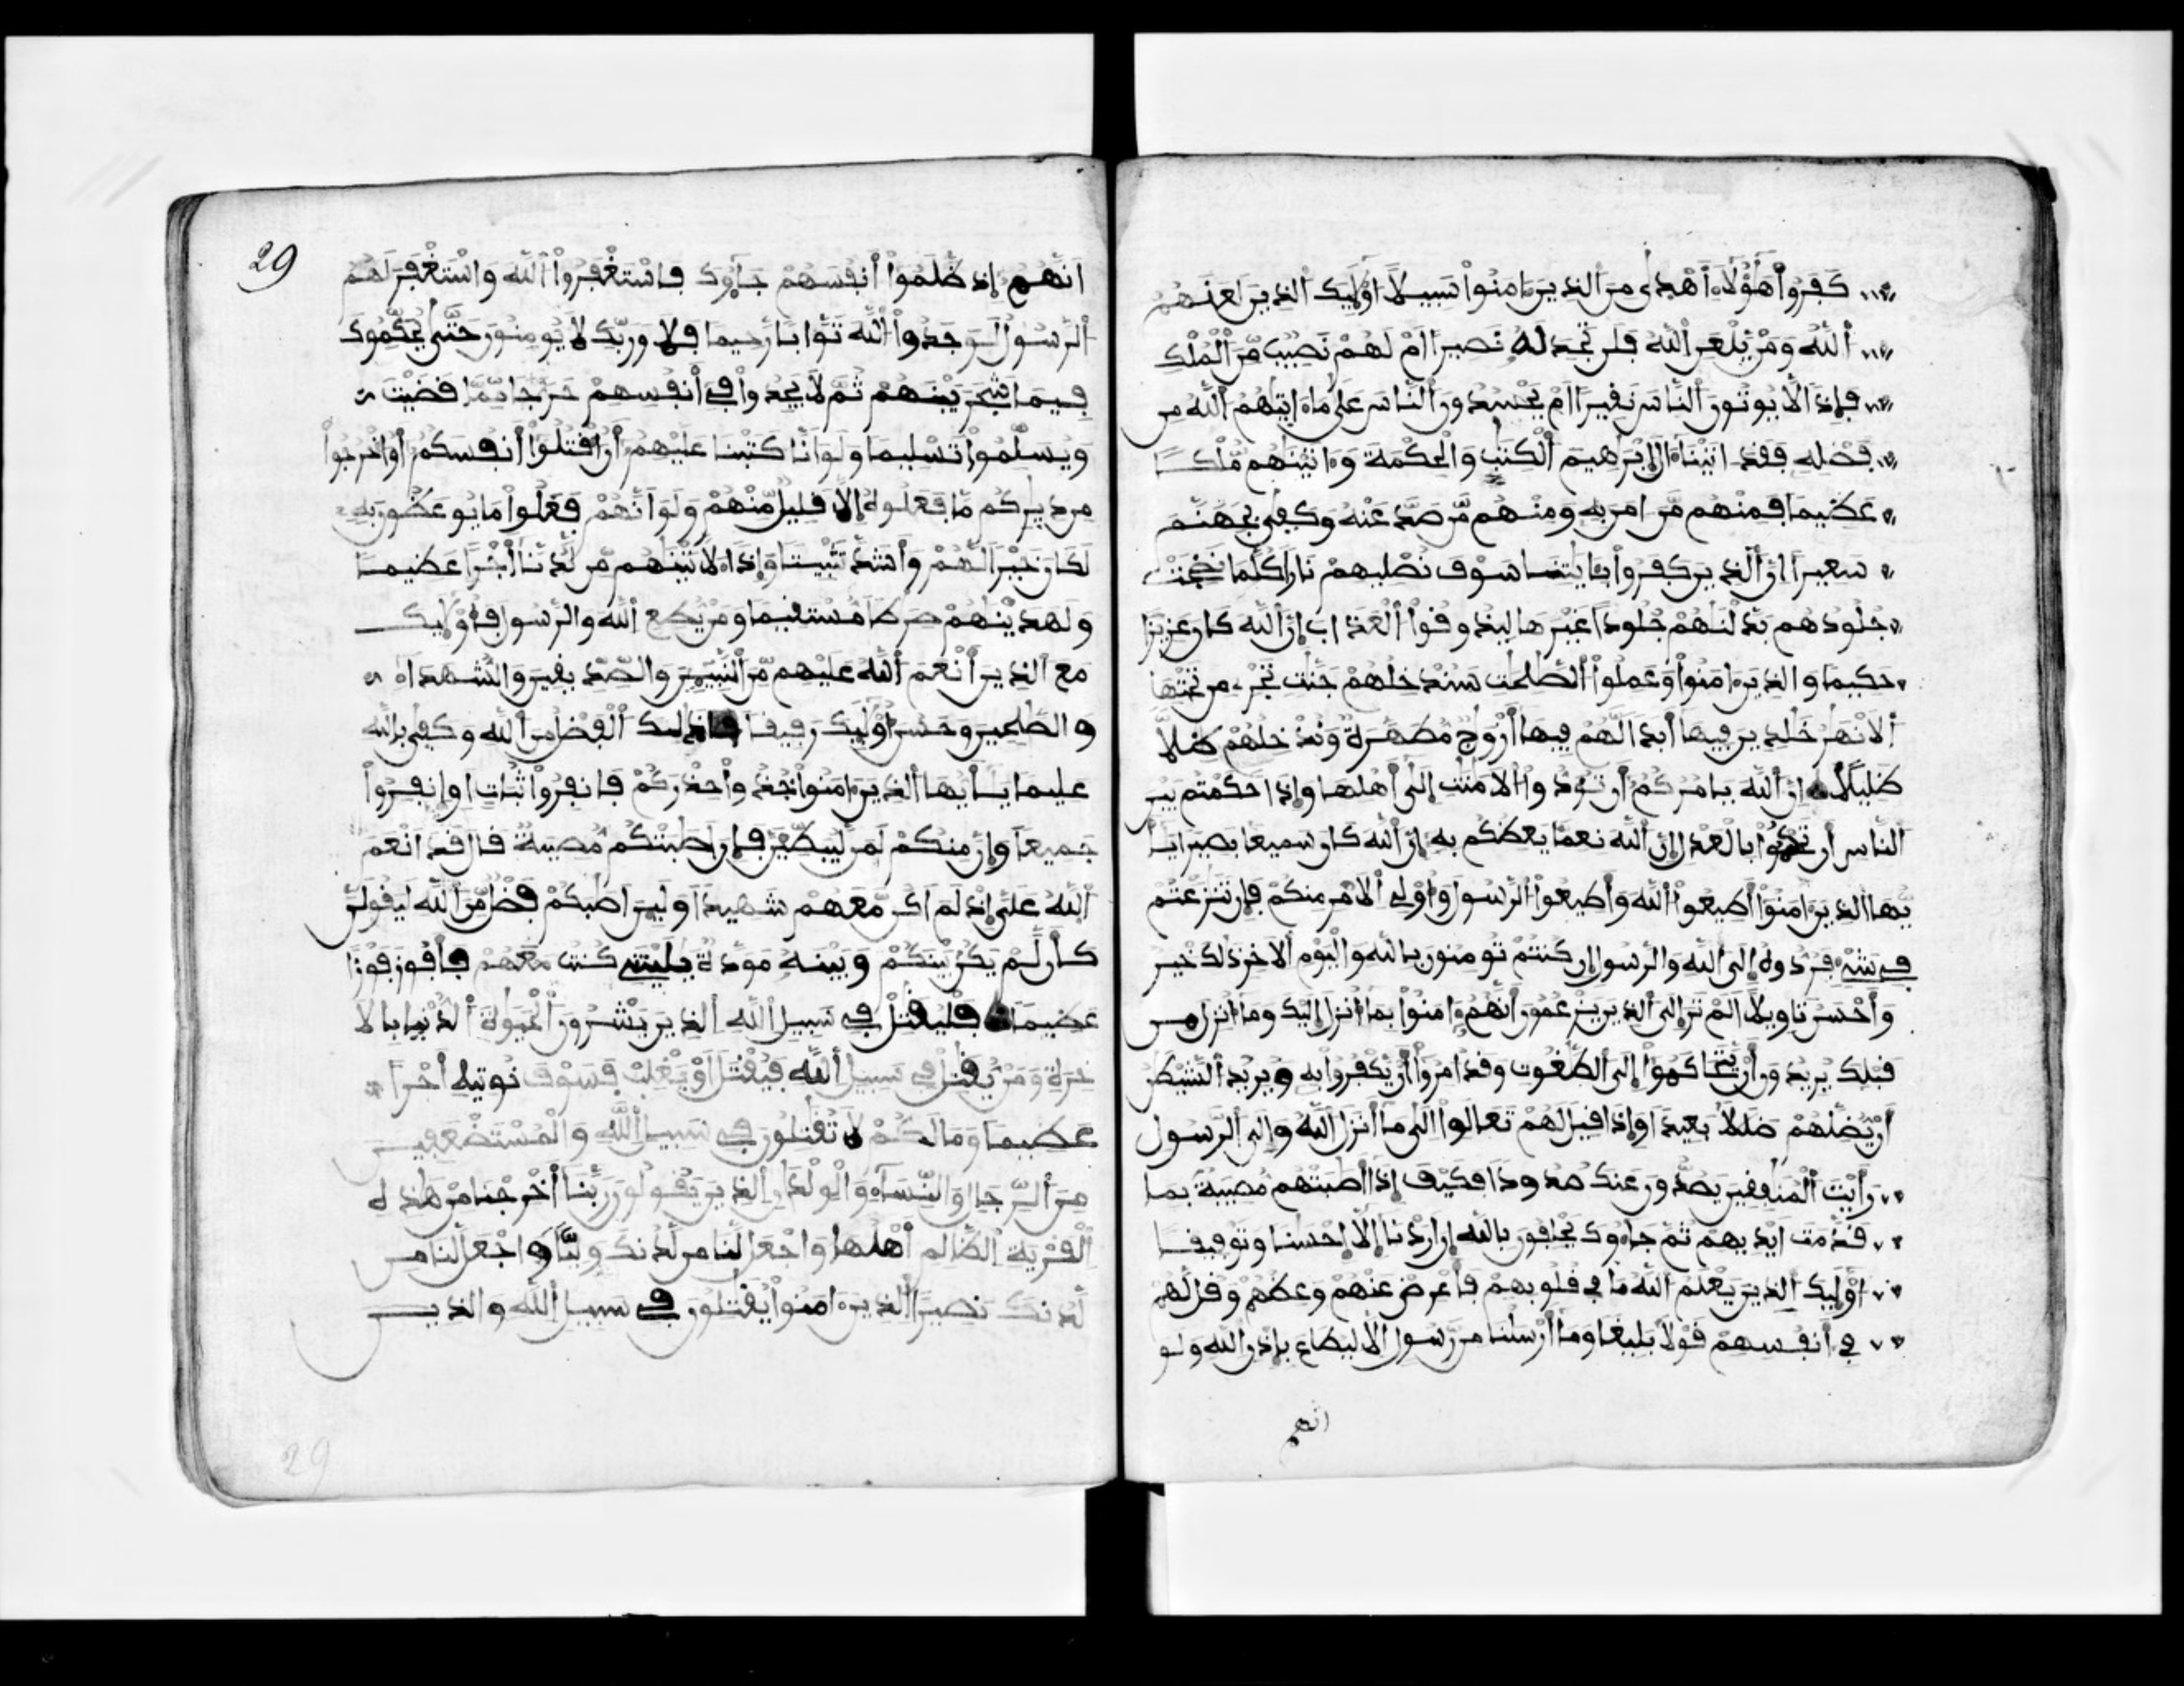 كفروا هؤلاء أهدى من الذين ءامنوا سبيلا اولئك الذين لعنهم
الله ومن يلعن الله فلن تجد له نصيرا ام لهم نصيب من الملك
فإذا لا يوتون الناس نفيرا ام يحسدون الناس على ما ءاتيهم الله من
فضله فقد اتينا ءال إبرهيم الكتب والحكمة وءاتينهم ملكا
عظيما فمنهم من امن به ومنهم من صد عنه وكفى بجهنم
سعيرا ان الذين كفروا بايتنا سوف نصليهم نارا كلما نضجت
جلودهم بدلنهم جلودا غيرها ليذوقوا العذاب إن الله كان عزيزا
حكيما والذين ءامنوا وعملوا الصلحت سندخلهم جنت تجرى من تحتها
الانهر خلدين فيها أبدا لهم فيها أزوج مطهرة وندخلهم ظلا
ظليلا ان الله يامركم أن تودوا الامنت إلى أهلها وإذا حكمتم بين
الناس أن تحكموا بالعدل إن الله نعما يعظكم به إن الله كان سميعا بصيرا يا
يها الذين ءامنوا أطيعوا الله وأطيعوا الرسول وأولى الامر منكم فإن تنزعتم
في شىء فردوه إلى الله والرسول إن كنتم تومنون بالله واليوم الاخر ذلك خير
وأحسن تاويلا الم تر إلى الذين يزعمون أنهم ءامنوا بما أنزل إليك وما أنزل من
قبلك يريدون أن يتحاكموا إلى الطغوت وقد امروا أن يكفروا به ويريد الشيطن
أن يضلهم ضللا بعيدا وإذا قيل لهم تعالوا الى ما أنزل الله وإلى الرسول
رأيت المنفقين يصدون عنك صدودا فكيف إذا أصبتهم مصيبة بما
قدمت ايديهم ثم جاءوك يحلفون بالله إن اردنا إلا إحسنا وتوفيقا
اولئك الذين يعلم الله ما في قلوبهم فأعرض عنهم وعظهم وقل لهم
في أنفسهم قولا بليغا وما أرسلنا من رسول الا ليطاع بإذن الله ولو
انهم
29
انهم إذ ظلموا أنفسهم جاءوك فاستغفروا الله واستغفر لهم
الرسول لوجدوا الله توابا رحيما فلا وربك لا يومنون حتى يحكموك
فيما شجر بينهم ثم لا يجدوا في أنفسهم حرجا مما قضيت
ويسلموا تسليما ولو انا كتبنا عليهم أن اقتلوا أنفسكم أو اخرجوا
من ديركم ما فعلوه إلا قليل منهم ولو انهم فعلوا ما يوعظون به
لكان خيرا لهم وأشد تثبيتا وإذا ءلاتينهم من لدنا أجرا عظيما
ولهدينهم صرطا مستقيما ومن يطع الله والرسول فأولئك
مع الذين أنعم الله عليهم من النبيـن والصديقين والشهداء
والصلحين وحسن أولئك رفيقا ذلك الفضل من الله وكفى بالله
عليما يايها الذين ءامنوا خذوا حذركم فانفروا ثبات او انفروا
جميعا وإن منكم لمن ليبطئن فإن اصبتكم مصيبة قال قد انعم
الله على إذ لم اكن معهم شهيدا ولئن اصبكم فضل من الله ليقولن
كأن لم يكن بينكم وبينه مودة يليتنى كنت معهم فأفوز فوزا
عظيما فليقتل في سبيل الله الذين يشرون الحيوة الدنيا بالا
خرة ومن يقتل في سبيل الله فيقتل أو يغلب فسوف نوتيه أجرا
عظيما وما لكم لا تقتلون في سبيل الله والمستضعفين
من الرجال والنساء والولدن الذين يقولون ربنا أخرجنا من هذه
القرية الظالم أهلها واجعل لنا من لدنك وليا واجعل لنا من
لدنك نصيرا الذين ءامنوا يقتلون في سبيل الله والذين
29